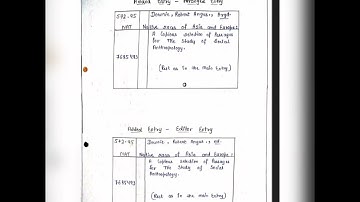 Added Entry - Arranger Entry
572.95
Downie, Robert Angus,
NAT
Native races of Asia and Europe:
A Copious selection of Passages
for The Study of Social
Anthropology.
7685493
(Rest as in the main Entry)
Added Entry - Editor Entry
572.95
Downie, Robert Angus, ed.
NAT
Native races of Asia and Europe:
A Copious selection of Passages
for The Study of Social
Anthropology.
7685493
(Rest as in the main Entry)